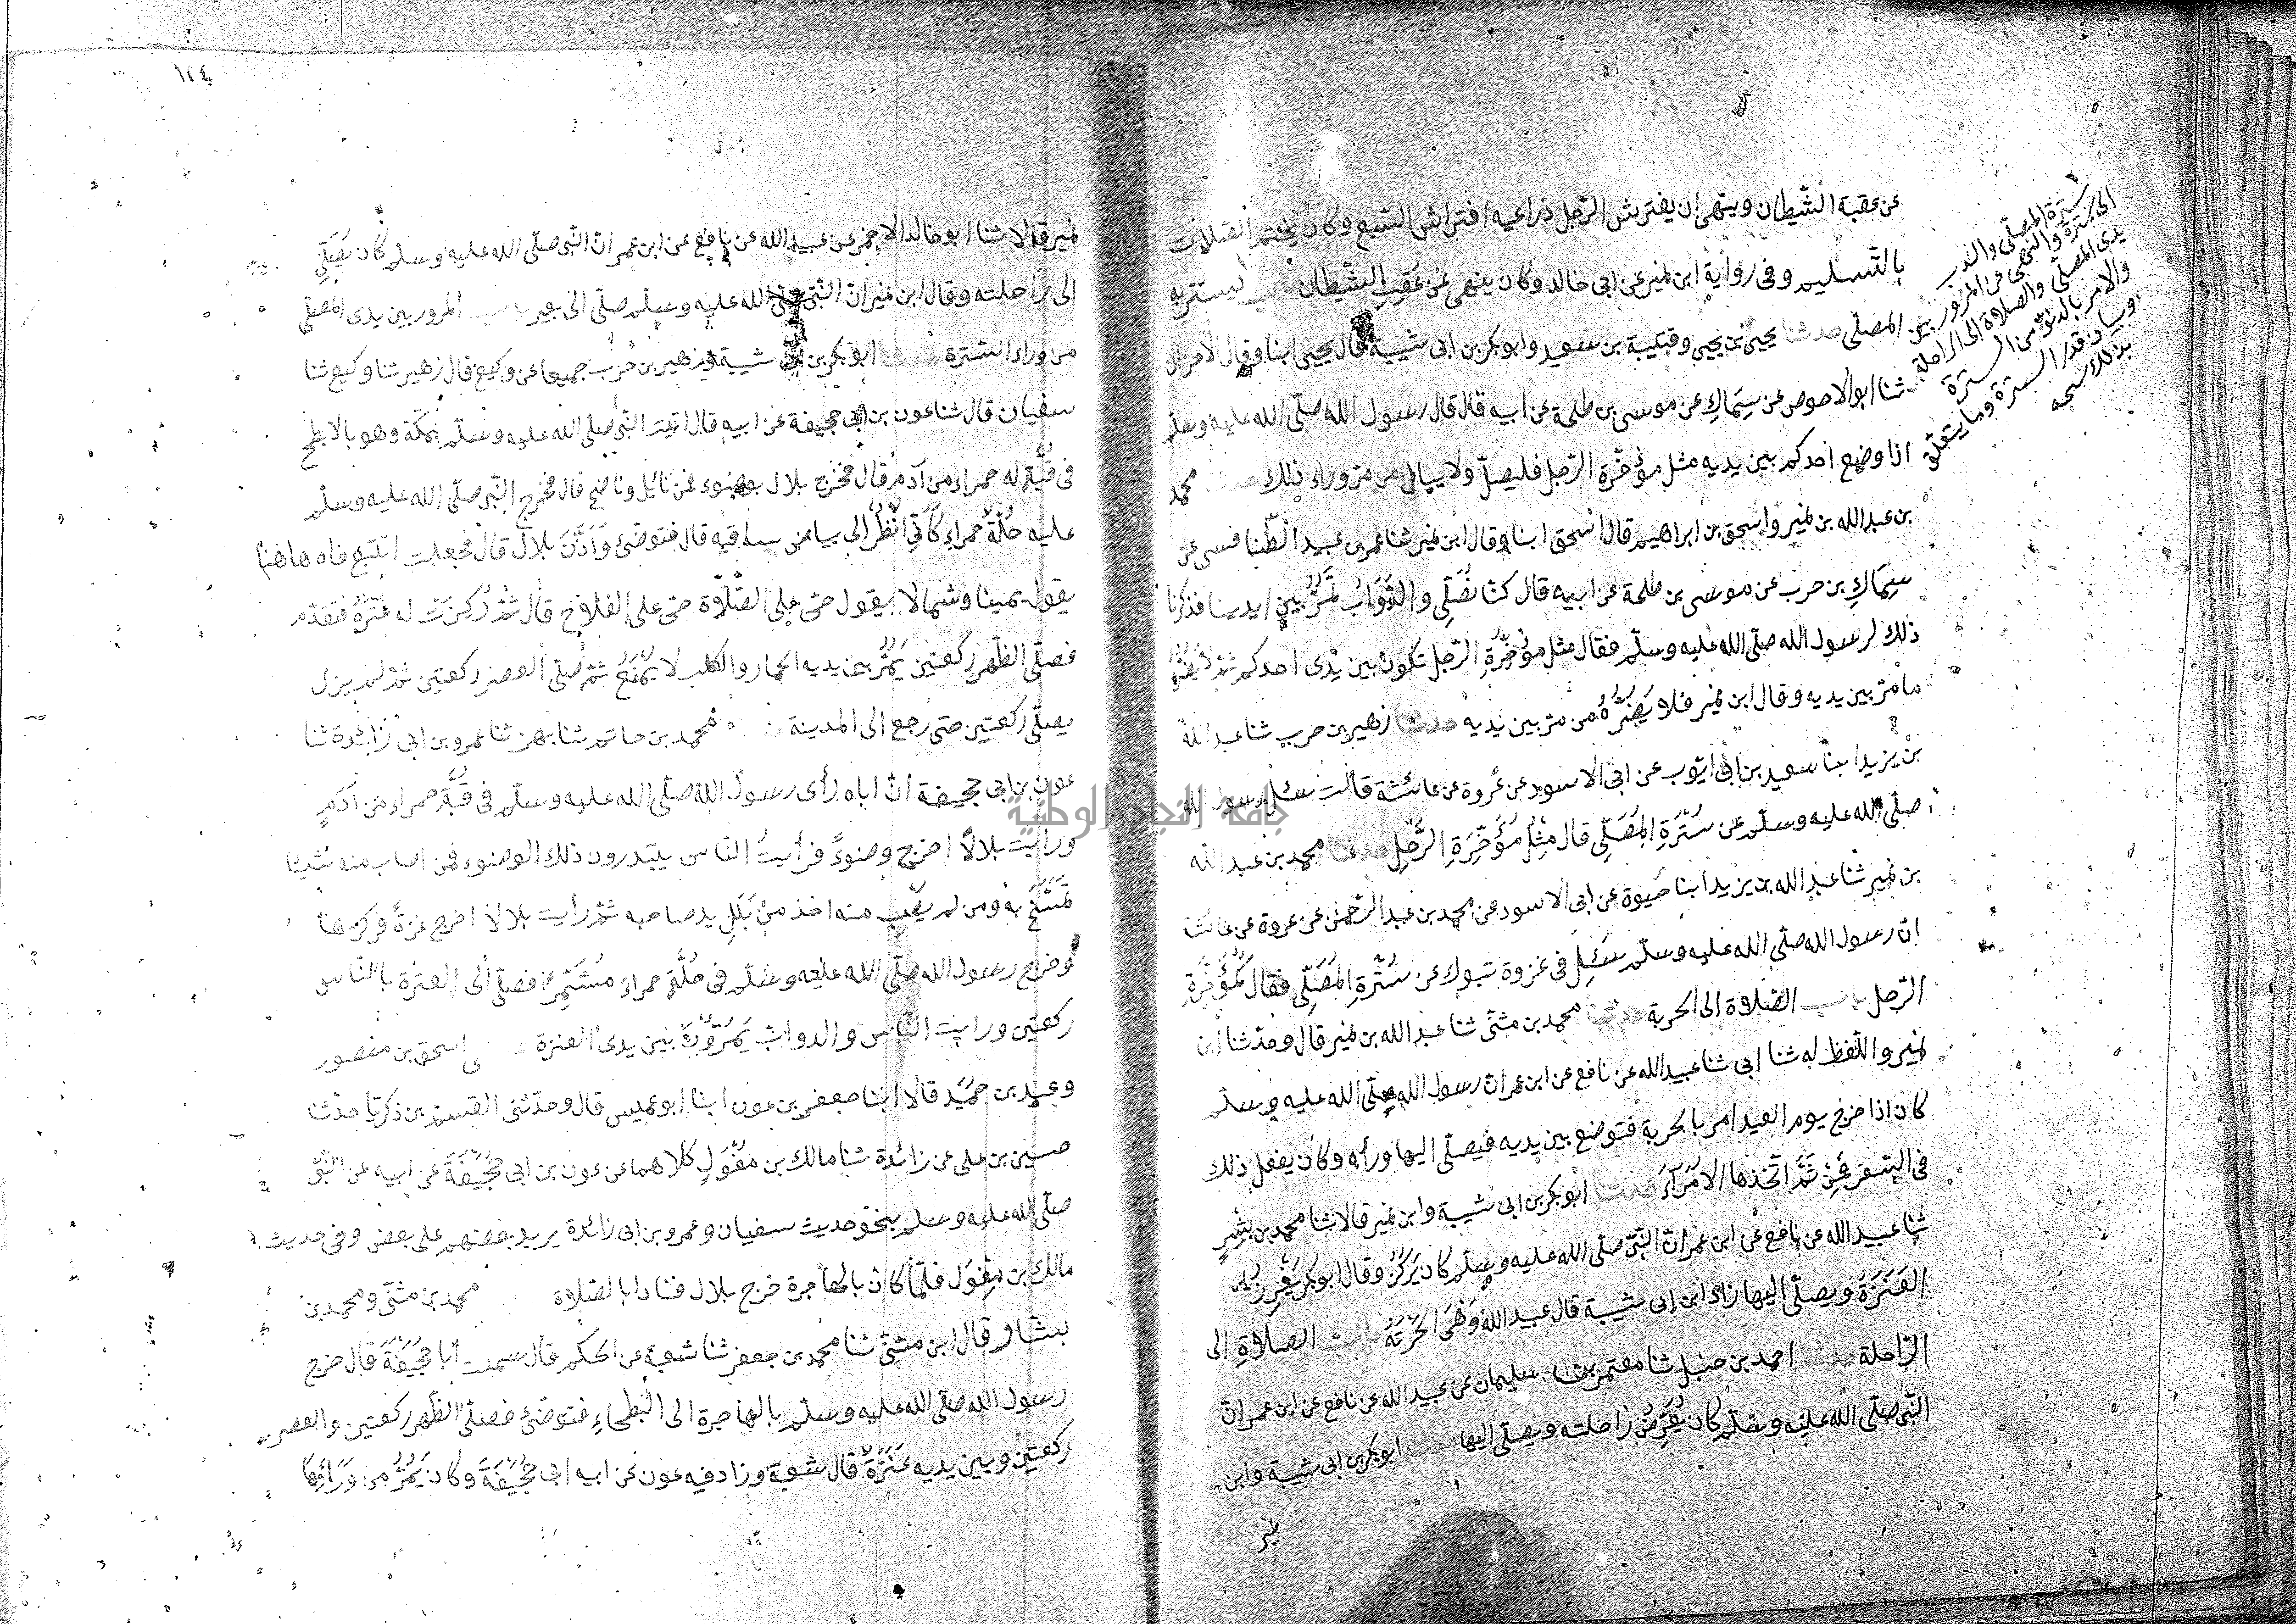 عن عقبة الشيطان وينهى ان يفترش الرّجل ذراعيه افتراش السّبع وكان يختم الصّلات
بالتّسليم وفى رواية ابن نمير عن ابى خالد وكان ينهى عن عَقِبِ الشّيطان باب ليستتر به
المصلّى حدثنا يحيى بن يحيى وقتيبة بن سعيد وابو بكر بن ابى شيبة قال يحيى ابنا وقال الآخران
ثنا ابو الاحوص عن سِمَاكٍ عن موسى بن طلحة عن ابيه قال قال رسول الله صلّى الله عليه وسلّم
اذا وضع احدكم بين يديه مثل مؤخّرة الرّحل فليصلّ ولا يبال من مرّ وراء ذلك حدثنا محمد
بن عبدالله بن نمير واسحق بن ابراهيم قال اسحق ابنا وقال ابن نمير ثنا عمر بن عبيد الطّنافسى عن
سِمَاكِ بن حرب عن موسى بن طلحة عن ابيه قال كنّا نُصَلِّى والدَّوَابُّ تَمُرُّ بين ايدينا فذكرنا
ذلك لرسول الله صلّى الله عليه وسلّم فقال مثل مُؤْخِرَةِ الرّحل تكون بين يَدَى احدكم ثمّ لا يَضُرُّهُ
ما مرّ بين يديه وقال ابن نمير فلا يَضُرُّهُ من مر بين يديه حدثنا زهير بن حرب ثنا عبد الله
بن يزيد ابنا سعيد بن ابى ايّوب عن ابى الاسود عن عُروة عن عائشة قالت سئل رسول الله
صلّى الله عليه وسلّم عن سُتْرَةِ المُصَلِّى قال مِثْلُ مُؤَخِّرَةِ الرَّحْلِ حدثنا محمد بن عبد الله
بن نمير ثنا عبد الله بن يزيد ابنا حَيوة عن ابى الاسود عن محمد بن عبد الرّحمن عن عروة عن عائشة
انّ رسول الله صلّى الله عليه وسلّم سئل فى غزوة تبوك عن سُتْرَةِ المُصَلِّى فقال كَمُؤَخِّرَةِ
الرّحل باب الصّلاة الى الحربة حدثنا محمد بن مثنّى ثنا عبد الله بن نمير قال وحدّثنا ابن
نمير واللّفظ له ثنا ابى ثنا عبيد الله عن نافع عن ابن عمر انّ رسول الله صلّى الله عليه وسلّم
كان اذا خرج يوم العيد امر بالحربة فتوضع بين يديه فيصلّى اليها وراءه وكان يفعل ذلك
فى السّفر فَمِنْ ثَمَّ اتّخذها الامَرَآءُ حدثنا ابو بكر بن ابى شيبة وابن نمير قالا ثنا محمد بن بِشْرٍ
ثنا عبيد الله عن نافع عن ابن عمر انّ النّبىّ صلّى الله عليه وسلّم كان يَرْكُزُ وقال ابو بكر يَغْرِزُ
العَنَزَةَ ويصلّى اليها زاد ابن ابى شيبة قال عبيد الله وَهْىَ الحَرْبَةُ باب الصلاةِ الى
الرّاحلة حدثنا احمد بن حنبل ثنا معتمر بن سليمان عن عبيد الله عن نافع عن ابن عمر انّ
النّبىّ صلّى الله عليه وسلّم كان يُعَرِّضُ راحلته ويصلّى اليها حدثنا ابو بكر بن ابى شيبة وابن
نمير
سترة المصلّى والندب
الى سترة والنّهى عن المرور بين
يدى المصلّى والصلاة الى الراحلة
والامر بالدنوّ من السترة
وبيان قدر السترة وما يتعلّق
بذلك
١٢٤
نمير قالا ثنا ابو خالد الاحمر عن عبيد الله عن نافع عن ابن عمر انّ النّبى صلّى الله عليه وسلّم كان يُصَلِّى
الى راحلته وقال ابن نمير انّ النّبى صلّى الله عليه وسلّم صلّى الى بعير باب المرور بين يدى المصلّى
من وراء السّترة حدثنا ابو بكر بن ابى شيبة وزهير بن حرب جميعا عن وكيع قال زهير ثنا وكيع ثنا
سفيان قال ثنا عون بن ابى جحيفة عن ابيه قال اتيت النّبى صلّى الله عليه وسلّم بمكّة وهو بالابطح
فى قُبَّةٍ له حمراء من آدم قال فخرج بلال بوضوء فمن نائل وناضح قال فخرج النّبى صلّى الله عليه وسلّم
عليه حُلَّةٌ حمراء كَأَنِّى انْظُرُ الى بياض ساقيه قال فتوضّئ وَاَذَّنَ بلال قال فجعلت اتتبّع فاه هاهنا
يقول يمينا وشمالا يقول حىّ على الصّلاة حىّ على الفلاح قال ثمّ رُكِزَتْ له عَنَزَةٌ فتقدّم
فصلّى الظّهر ركعتين يَمُرُّ بين يديه الحمار والكلب لا يُمْنَعُ ثمّ صلّى العصر ركعتين ثمّ لم يزل
يصلّى ركعتين حتى رجع الى المدينة محمد بن حاتم ثنا بهز ثنا عمرو بن ابى زائدة ثنا
عون بن ابى جحيفة انّ اباه رأى رسول الله صلّى الله عليه وسلّم فى قُبَّةٍ حمراء من اَدَمٍ
ورايت بلالًا اخرج وضوءً فرأيتُ النّاس يبتدرون ذلك الوضوء فمن اصاب منه شيئا
تَمَسَّحَ به ومن لم يُصِب منه اخذ من بَلَلِ يد صاحبه ثمّ رأيت بلالا اخرج عنزةً فركزها
وخرج رسول الله صلّى الله عليه وسلّم فى حُلَّةٍ حمراءَ مُشَمِّرًا فصلّى الى العنزة بالنّاس
ركعتين ورايت النّاس والدوابّ يَمُرُّونَ بين يدى العنزة اسحق بن منصور
وعبد بن حُمَيْد قالا ابنا جعفر بن عون ابنا ابو عميس قال وحدّثنى القسم بن زكريّا حدّثنا
حسين بن على عن زائدة ثنا مالك بن مِغْوَلٍ كلاهما عن عون بن ابى جُحَيْفَةَ عن ابيه عن النّبىّ
صلّى الله عليه وسلّم بنحو حديث سفيان وعمرو بن ابى زائدة يزيد بعضهم على بعض وفى حديث
مالك بن مِغْوَل فلمّا كان بالهاجرة خرج بلال فنادا بالصّلاة محمد بن مثنّى ومحمد بن
بشّار قال ابن مثنّى ثنا محمد بن جعفر ثنا شعبة عن الحكم قال سمعت ابا جُحَيْفَةَ قال خرج
رسول الله صلّى الله عليه وسلّم بالهاجرة الى البَطْحَاءِ فتوضّئ فصلّى الظّهر ركعتين والعصر
ركعتين وبين يديه عَنَزَةٌ قال شعبة وزاد فيه عون عن ابيه ابى جُحَيْفَةَ وكان يَمُرُّ من وَرَائِهَا
جامعة النجاح الوطنية